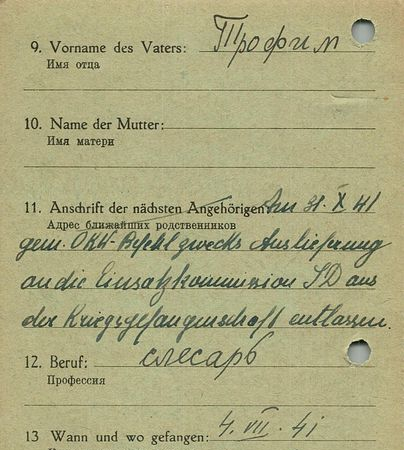 9. Vorname des Vaters: Трофим
Имя отца
10. Name der Mutter:
Имя матери
11. Anschrift der nächsten Angehörigen: Am 31. X 41
Адрес ближайших родственников
gem. OKW-Befehl zwecks Auslieferung
an die Einsatzkommission SD aus
der Kriegsgefangenschaft entlassen.
12. Beruf: слесарь
Профессия
13 Wann und wo gefangen: 4. VII. 41